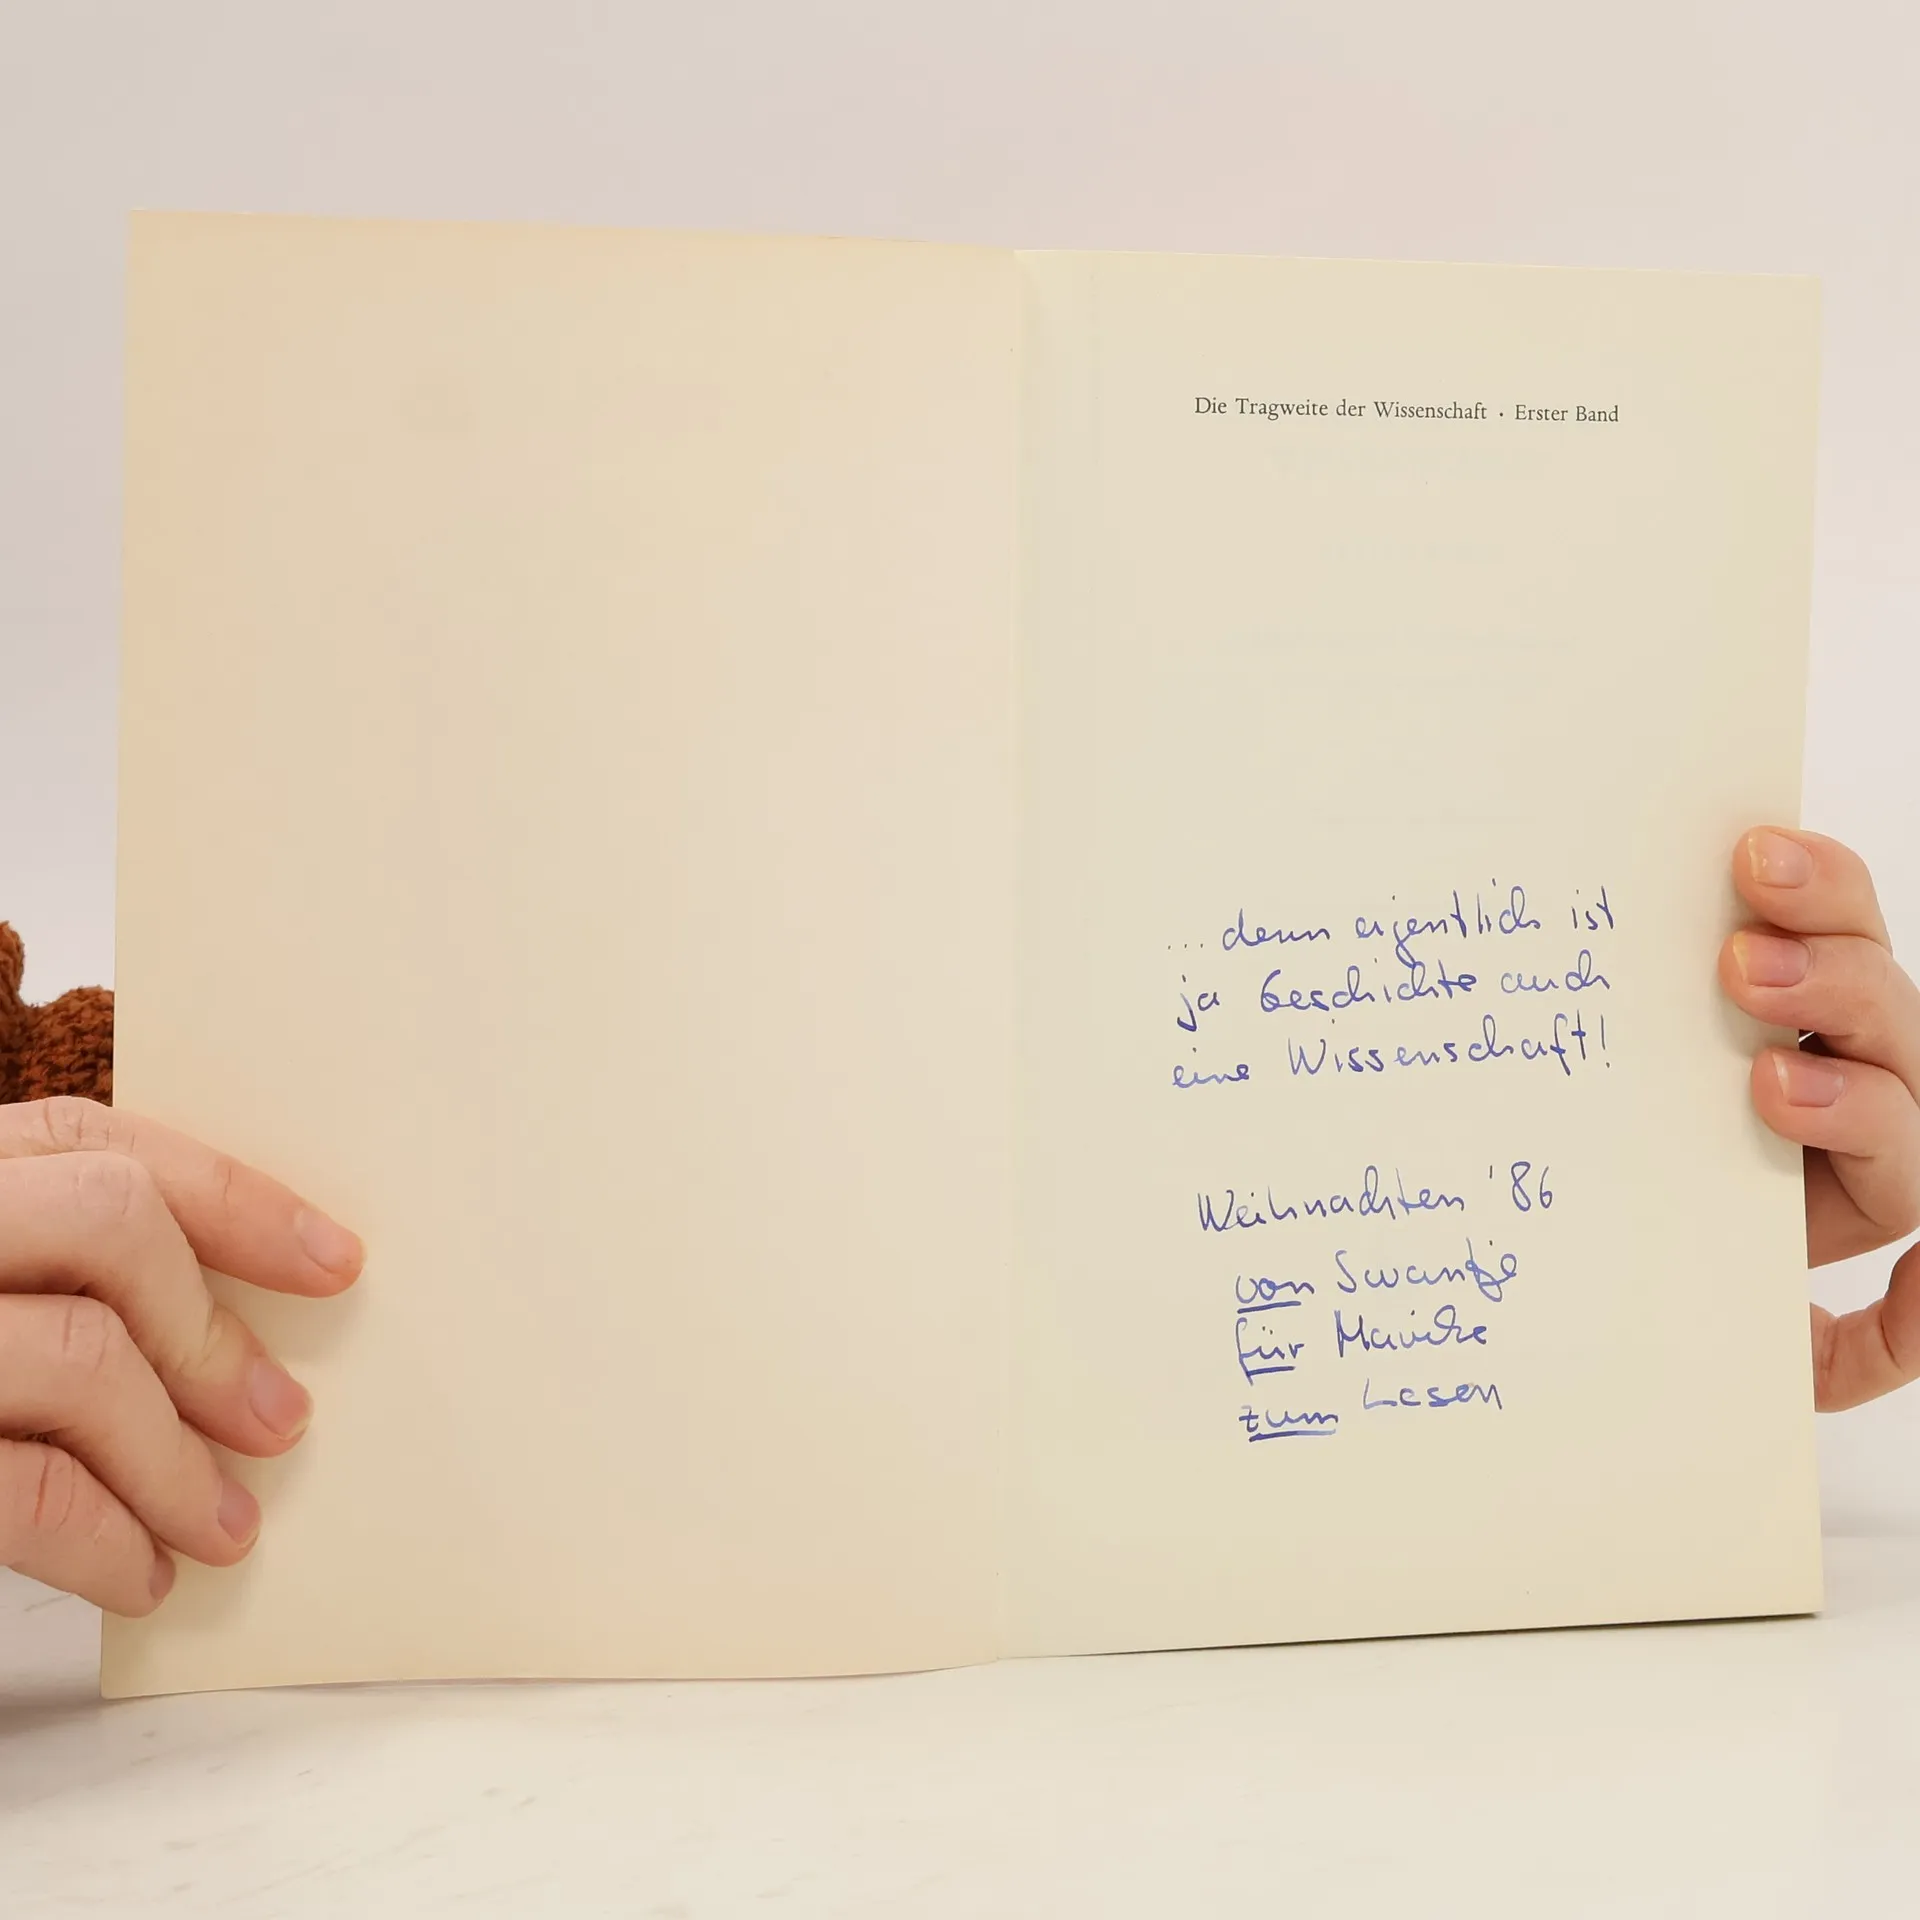 Die Tragweite der Wissenschaft · Erster Band
... denn eigentlich ist
ja Geschichte auch
eine Wissenschaft!
Weihnachten '86
von Swantje
für Mareike
zum Lesen